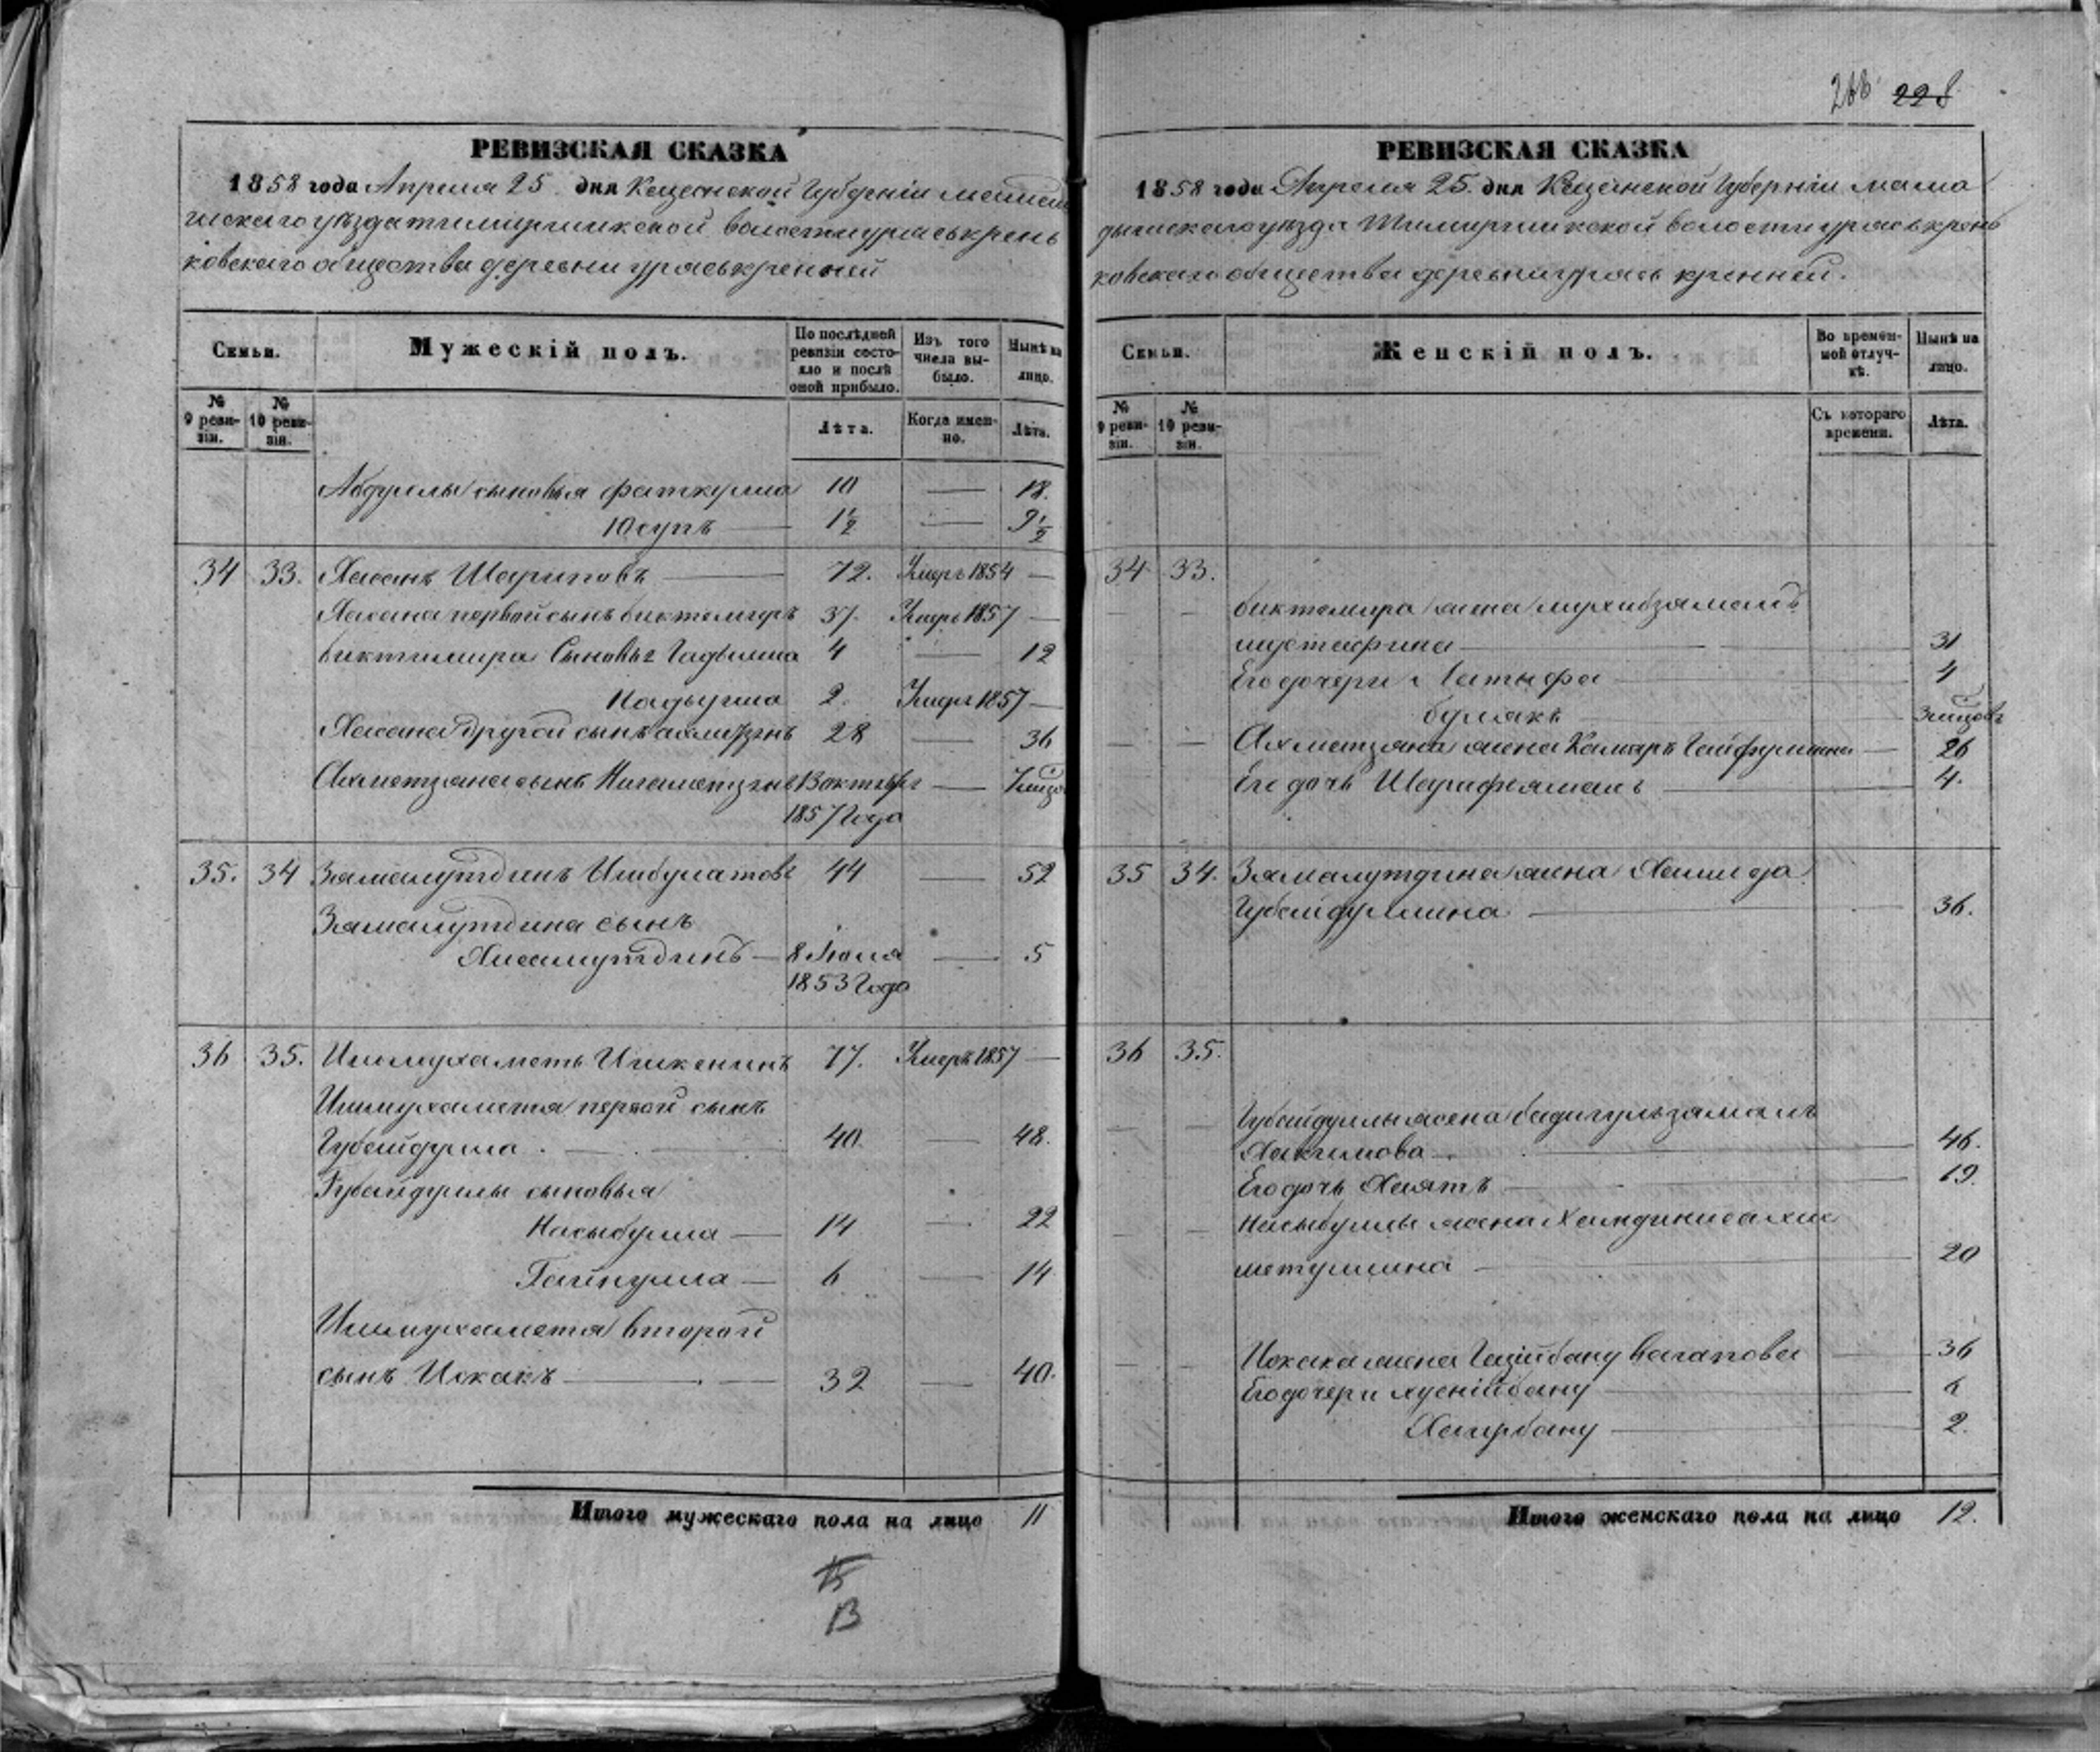 РЕВИЗСКАЯ СКАЗКА
1858 года Апреля 25 дня Казанской Губерніи мамад
ышскаго уѣзда волости
ковскаго общества деревни
Семьи.
Мужескій полъ.
По послѣдней ревизіи состояло и послѣ оной прибыло.
Изъ того числа выбыло.
Нынѣ на лицо.
№ 9 ревизіи.
№ 10 ревизіи.
Лѣта.
Когда именно.
Лѣта.
Абдуллы сыновья фаткулла 10 — 18.
Юсупъ — 1½ — 9½
34 33. Хасанъ Шариповъ — 72. Умеръ 1854 —
Хасана первой сынъ биктемиръ 37. Умеръ 1857 —
биктимира Сыновья 4 — 12
2. Умеръ 1857 —
Хасана другой сынъ 28 — 36
Ахметзяна сынъ 13 октября —
1857 Года
35. 34 Замалутдинъ Ишбулатовъ 44 — 52
Замалутдина сынъ
Хисамутдинъ — 8 Июля — 5
1853 Года
36 35. Ишмухаметь Ишкенинъ 77. Умеръ 1857 —
Ишмухаметя первой сынъ
Губайдулла — 40. — 48.
Губайдуллы сыновья
Насыбулла — 14 — 22
Гайнулла — 6 — 14
Ишмухаметя второй
сынъ Исхакъ — 32 — 40.
Итого мужескаго пола на лицо 11
13
228
РЕВИЗСКАЯ СКАЗКА
1858 года Апреля 25. дня Казанской Губерніи мама
дышскаго уѣзда волости
ковскаго общества деревни
Семьи.
Женскій полъ.
Во временной отлучкѣ.
Нынѣ на лицо.
№ 9 ревизіи.
№ 10 ревизіи.
Съ котораго времени.
Лѣта.
34 33.
биктемира жена
— 31
Его дочери Латыфа — 4
Ахметзяна жена Камаръ Гайфуллина — 26
Его дочь — 4.
35 34. Замалутдина жена Хамида
Губайдуллина — 36.
36 35.
Губайдуллы жена бадигульзамалъ
Хакимова — 46.
Его дочь Хаятъ — 19.
Насыбуллы жена
метуллина — 20
Исхака жена Вагапова — 36
Его дочери — 6
Хаирбану — 2.
Итого женскаго пола на лицо 12.